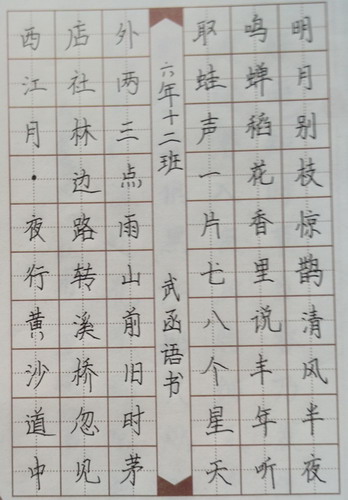 明月别枝惊鹊清风半夜
鸣蝉稻花香里说丰年听
取蛙声一片七八个星天
六年十二班 武函语书
外两三点雨山前旧时茅
店社林边路转溪桥忽见
西江月·夜行黄沙道中